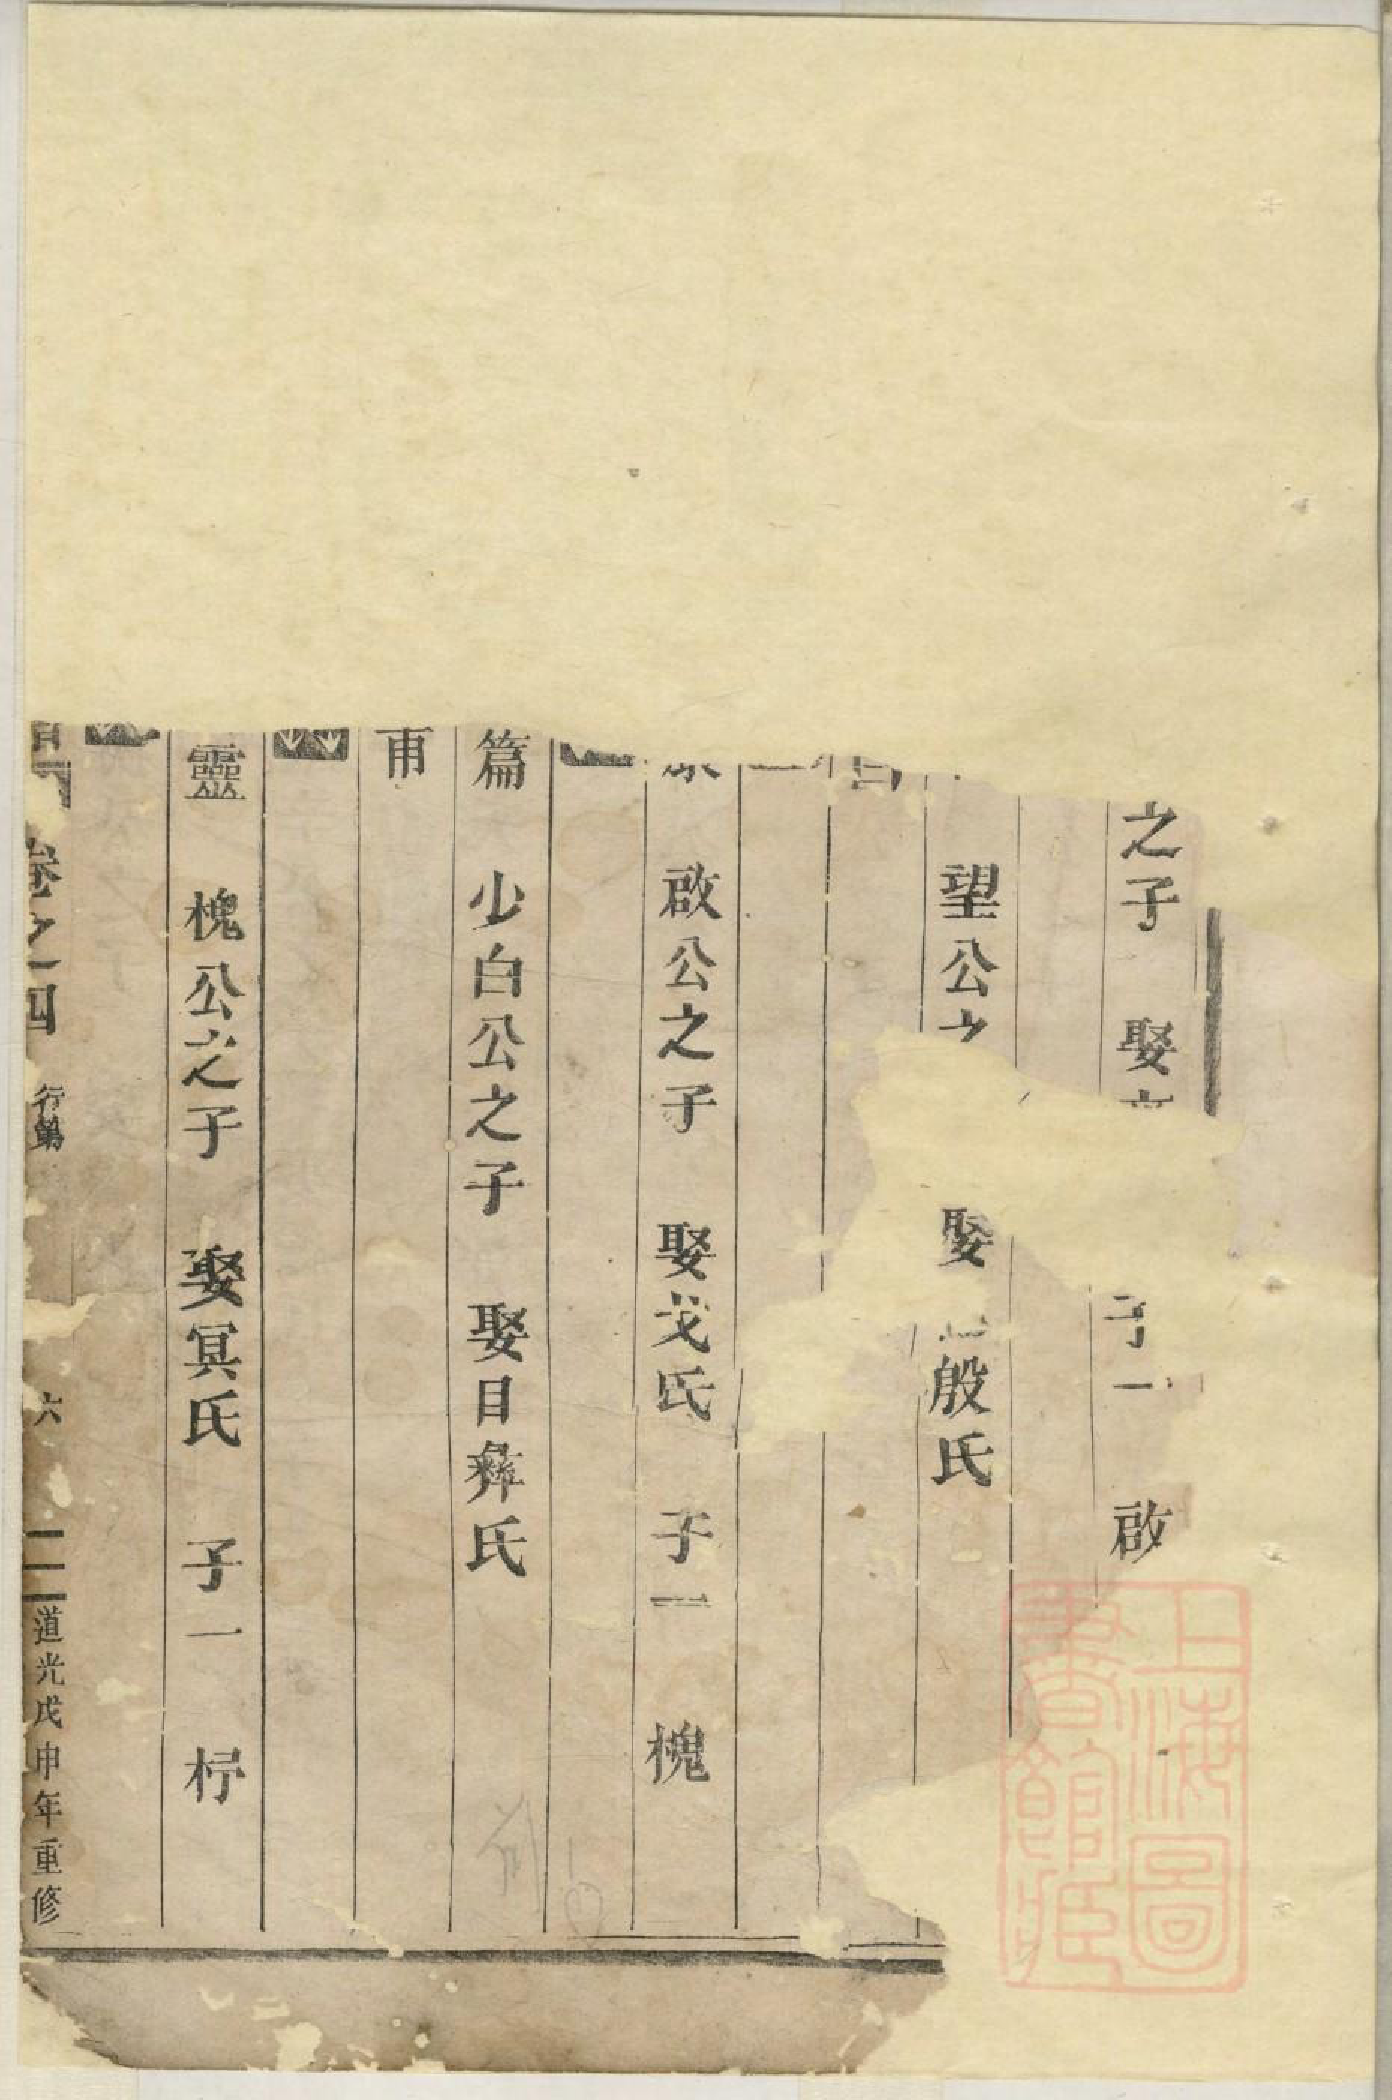 之子 娶 子一 啟
望公之 娶 殷氏
啟公之子 娶戈氏 子一 槐
篇 少白公之子 娶目彝氏
甫
靈 槐公之子 娶冥氏 子一 杼
卷之四 行第 六 道光戊申年重修
上海圖書館藏